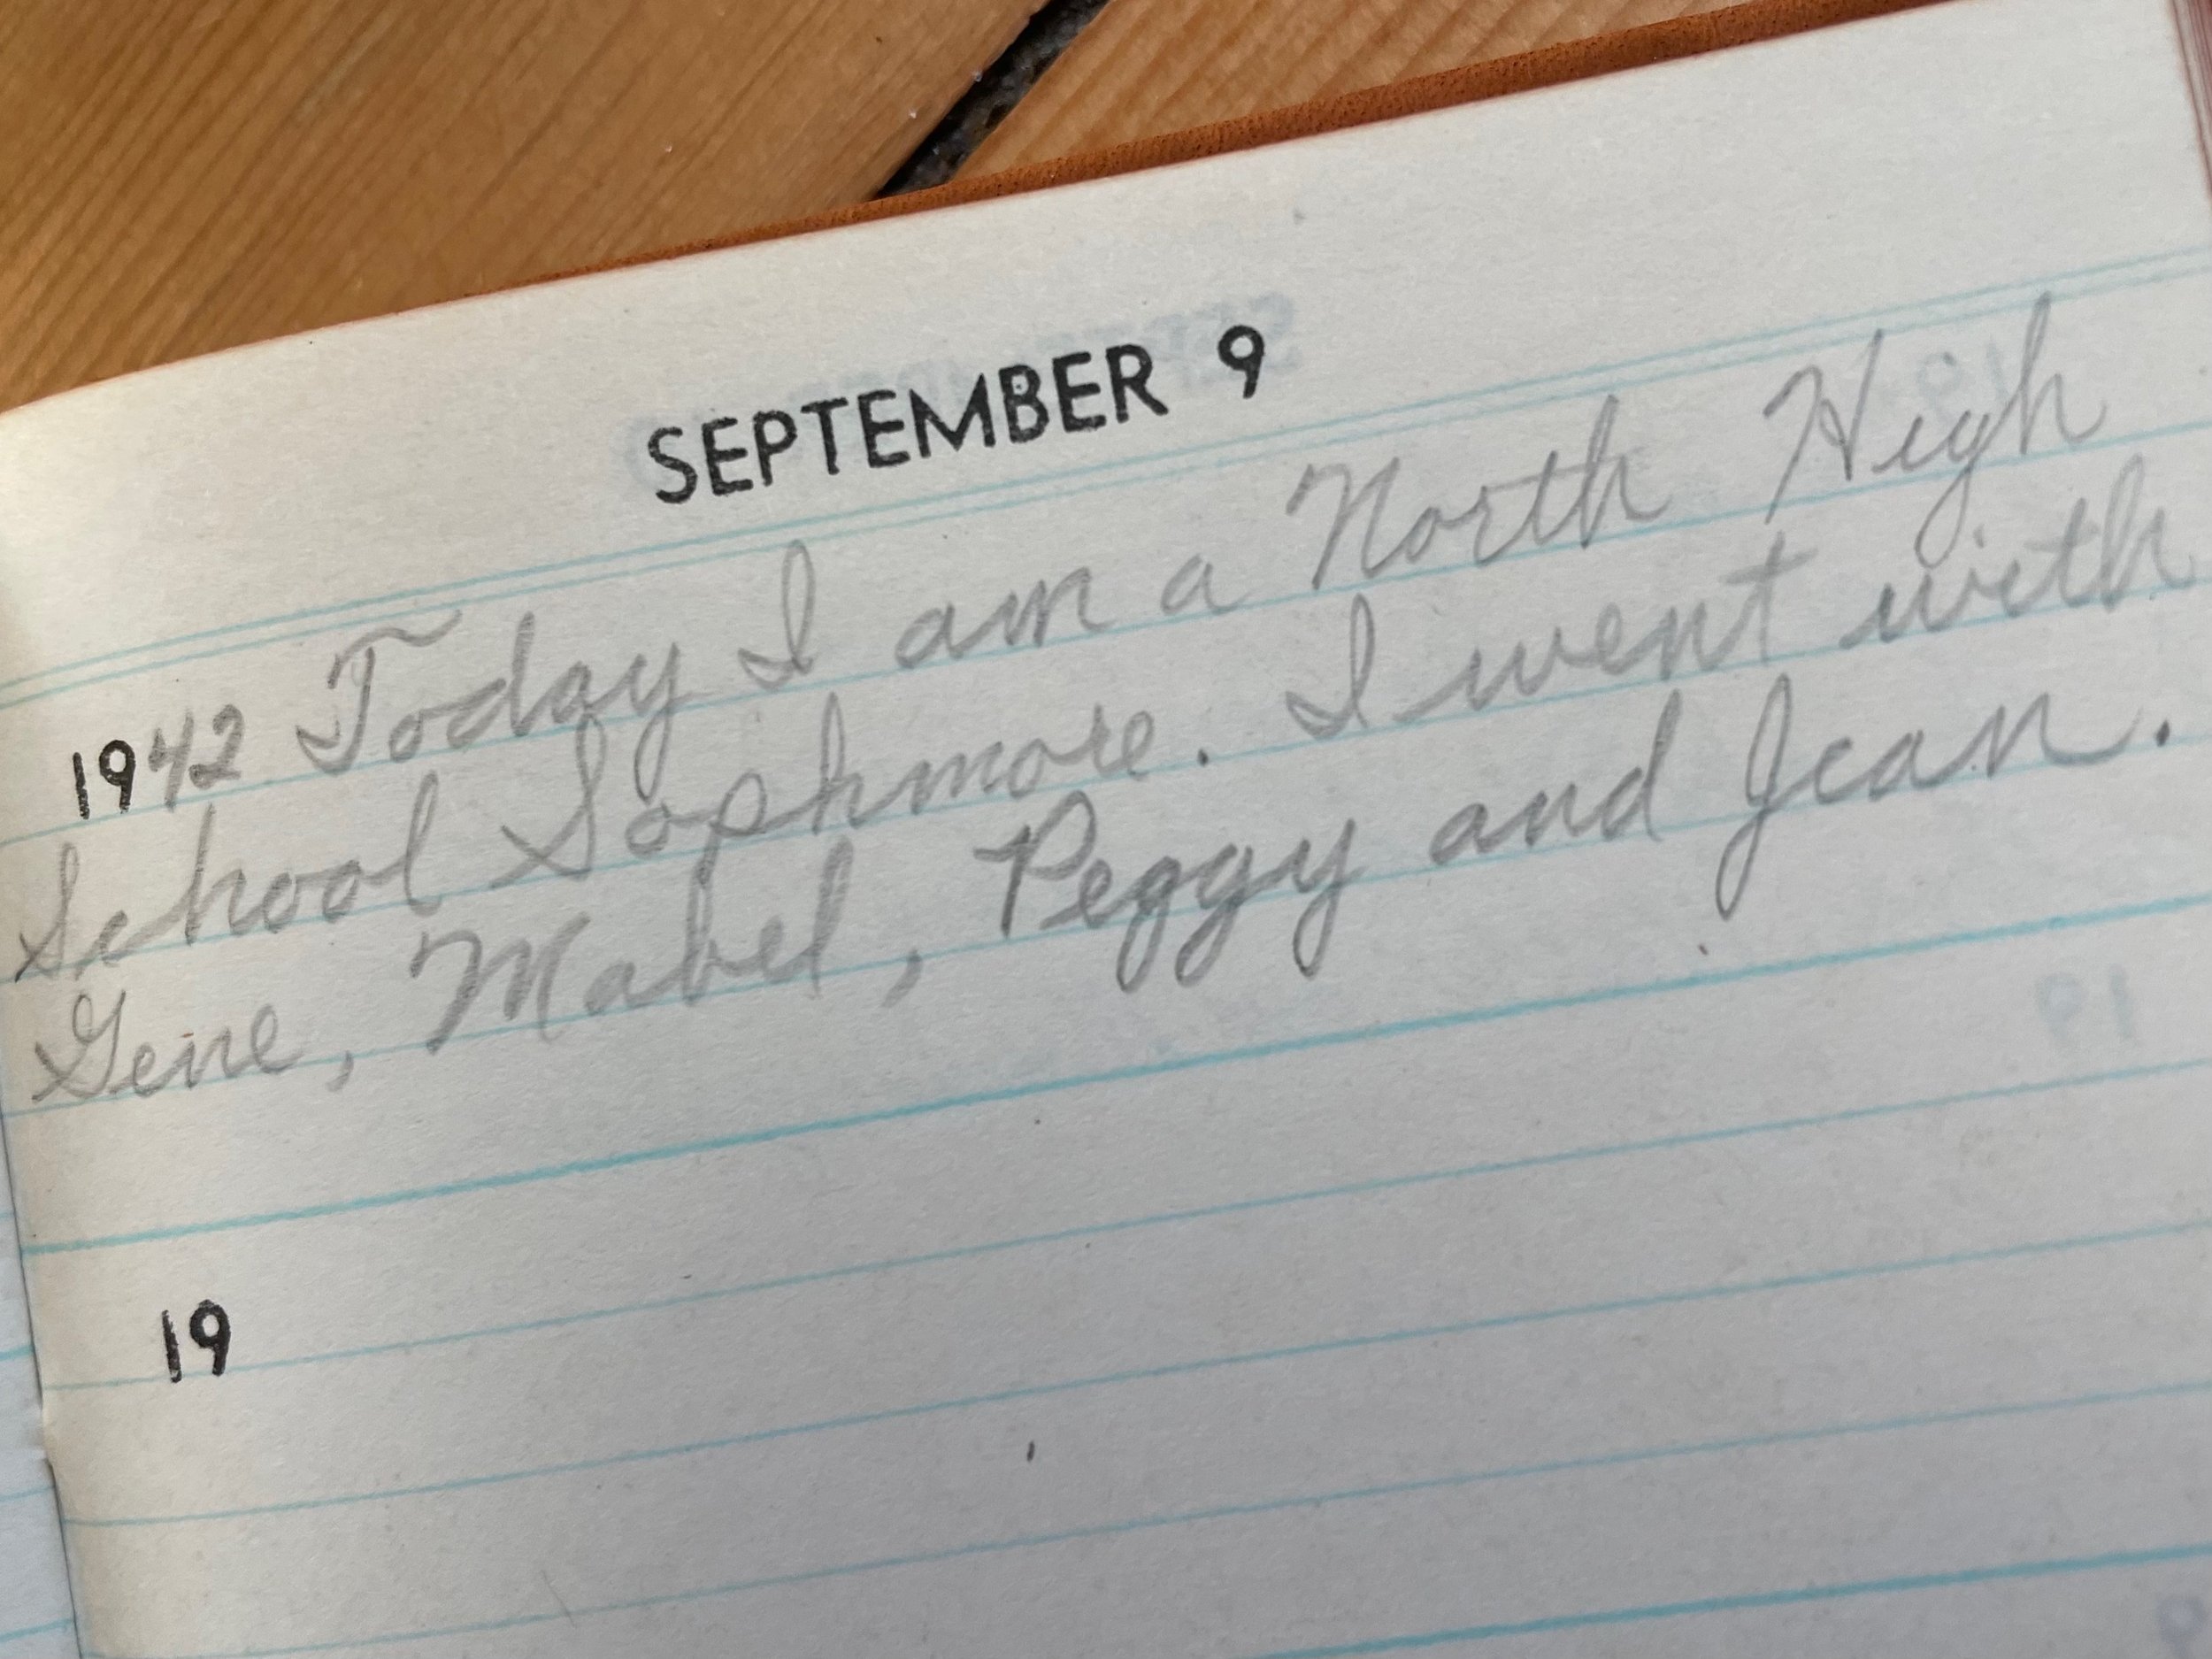 SEPTEMBER 9
1942 Today I am a North High
School Sophmore. I went with
Gene, Mabel, Peggy and Jean.
19